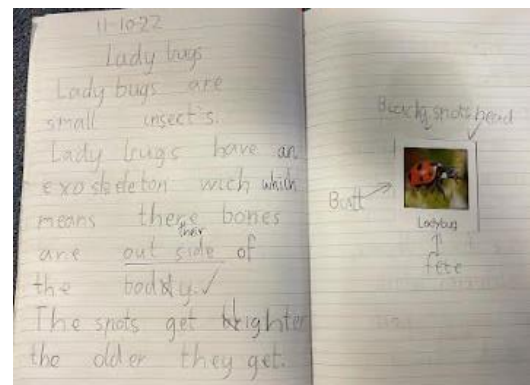 11-10-22
Lady bugs
Lady bugs are
small insect's.
Lady bugs have an
exoskeleton wich which
means there bones
ther
are out side of
the body.✓
The spots get brighter
the older they get.
spots head
Butt
Ladybug
fete